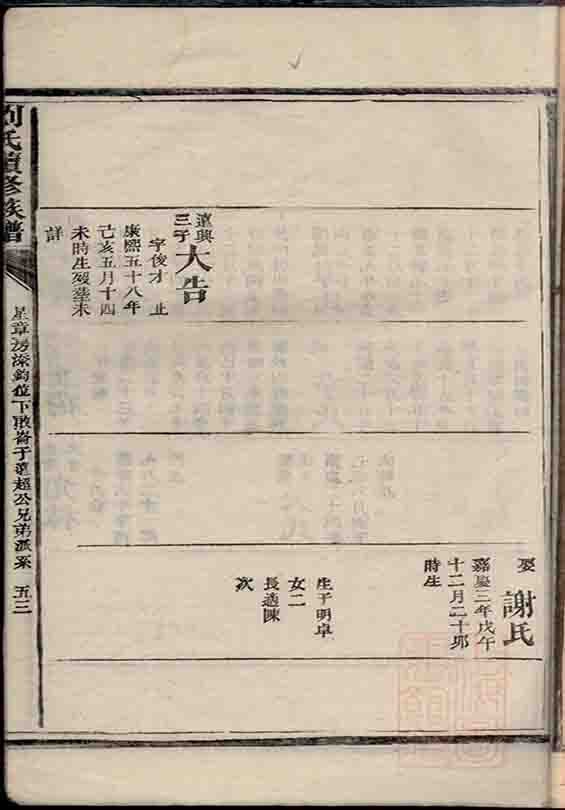 娶
謝氏
嘉慶三年戊午
十二月二十卯
時生
生子明卓
女二
長適陳
次
遠興
三子
大告
字俊才 止
康熙五十八年
己亥五月十四
未時生歿塟未
詳
劉氏續修族譜
星章房 位下 子 超公兄弟派系 五三